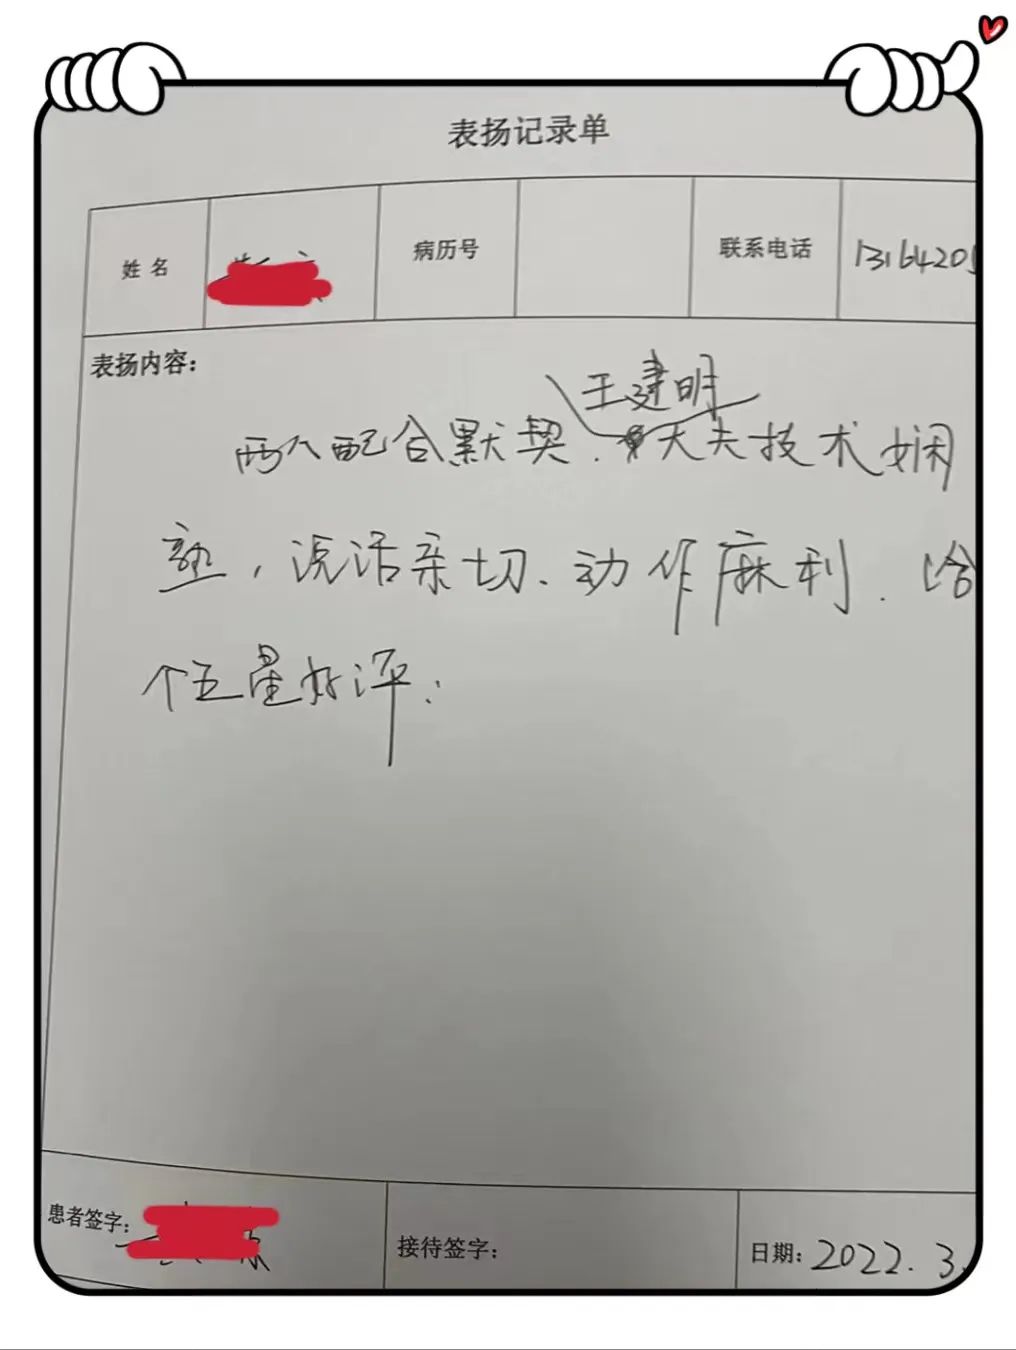 表扬记录单
姓名
病历号
联系电话
1316420
表扬内容：
王建明
两人配合默契.大夫技术娴
熟，说话亲切、动作麻利.给
个五星好评.
患者签字：
接待签字：
日期：2022.3.